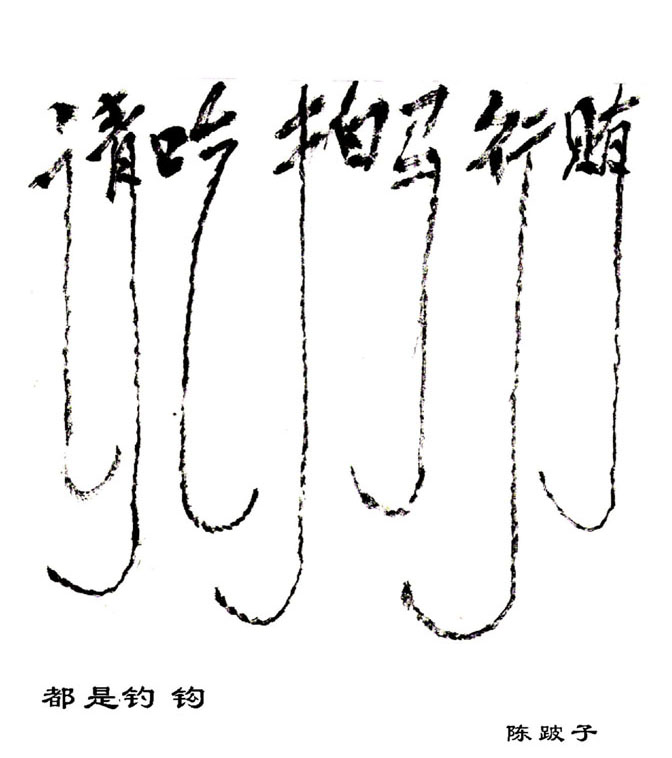 请吃 拍马 行贿
都是钓钩
陈跛子